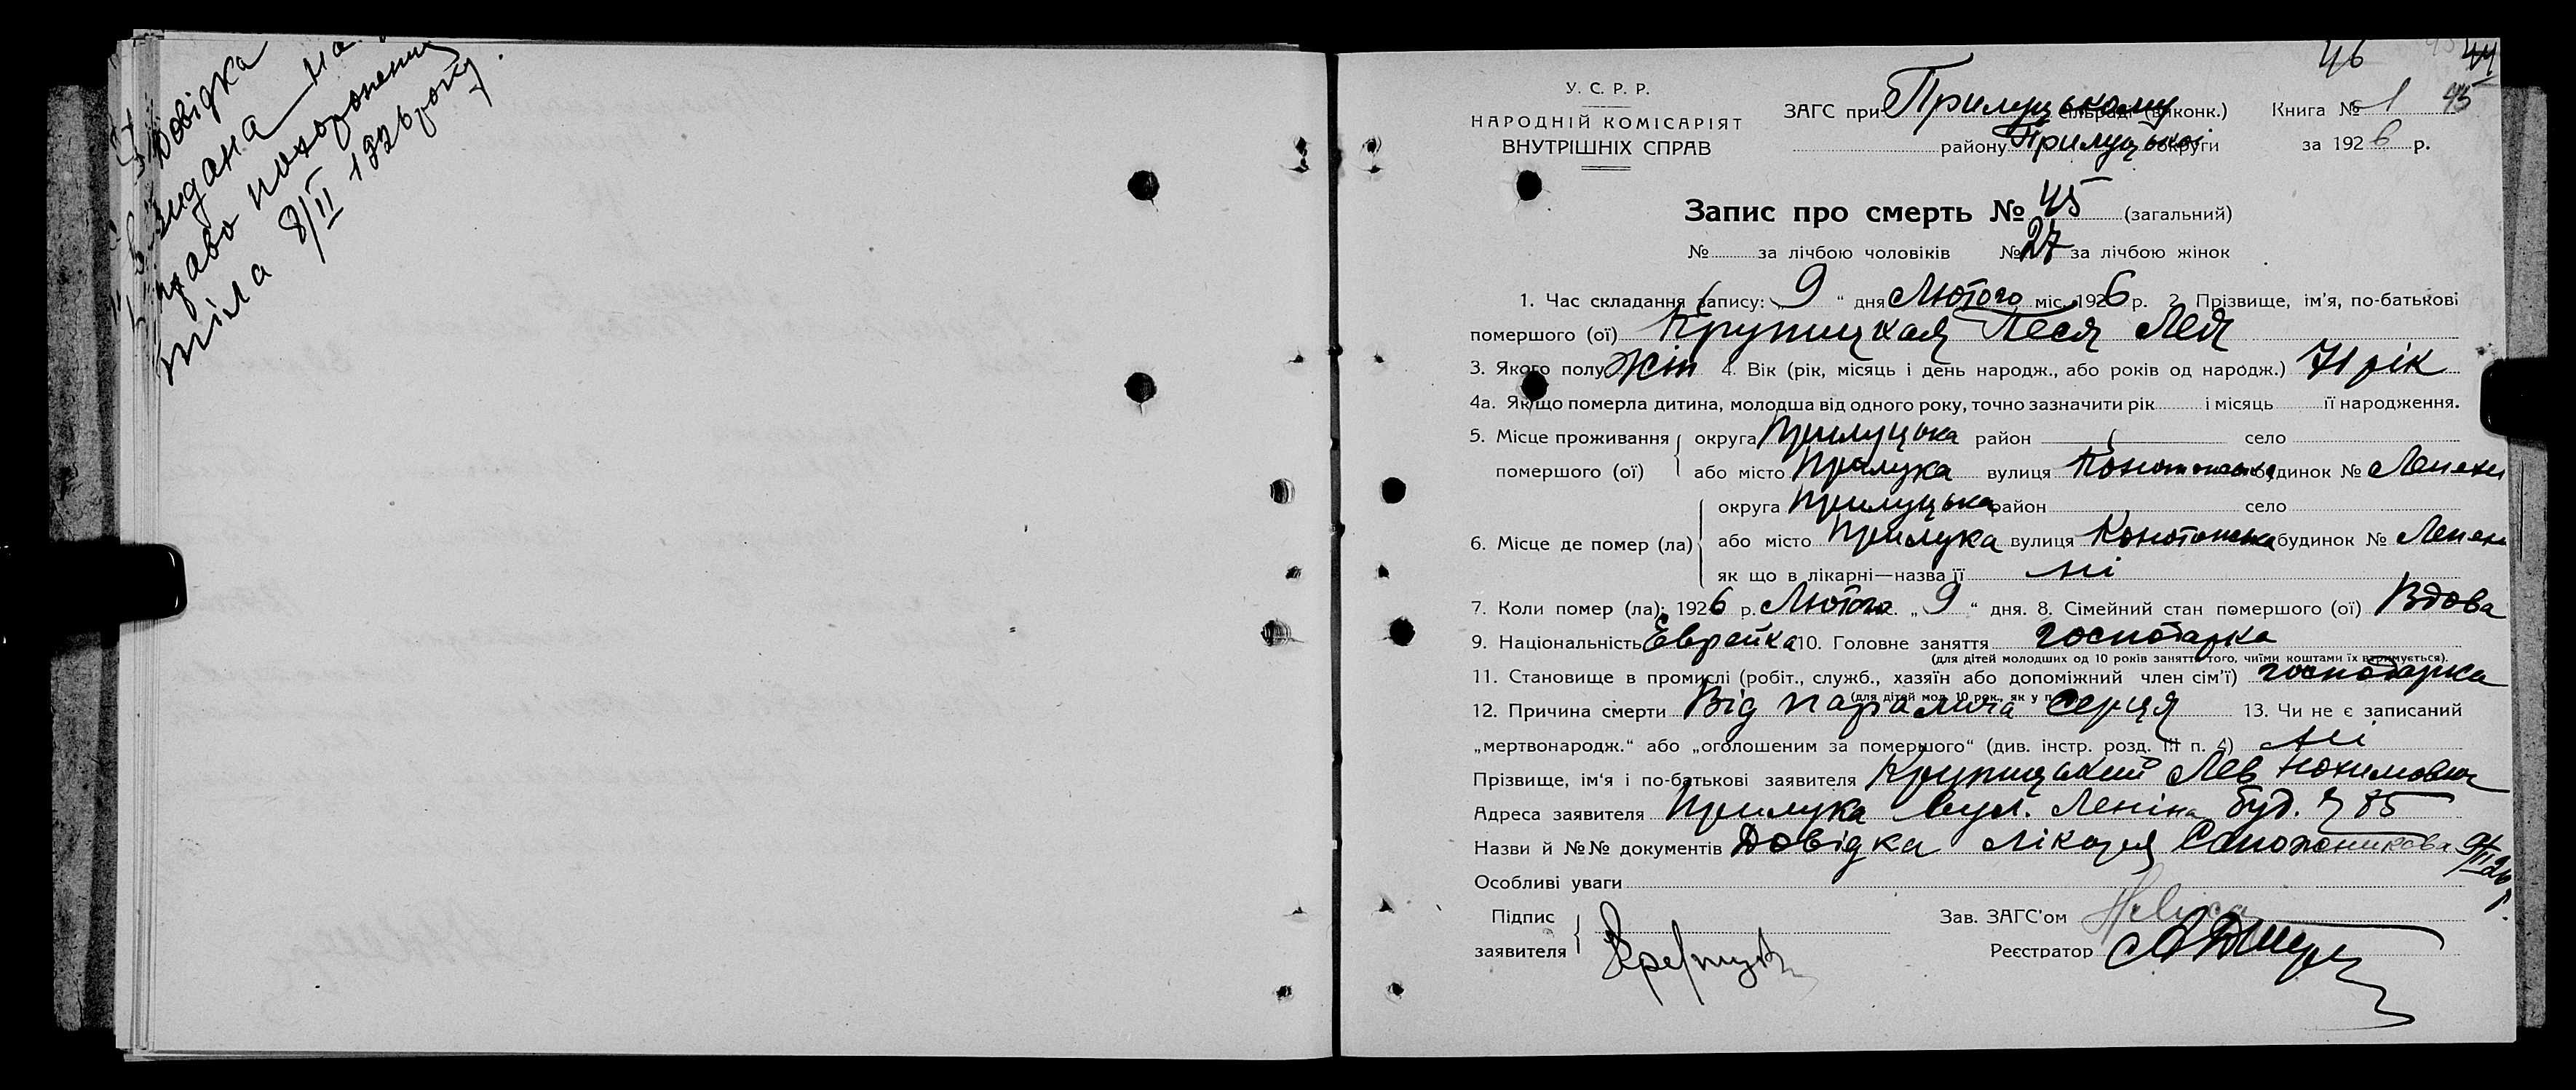 Довідка
видана на
право похоронення
тіла 8/II 1926 року.
46 44
45
У. С. Р. Р.
НАРОДНІЙ КОМІСАРІЯТ
ВНУТРІШНІХ СПРАВ
ЗАГС при Прилуцькому сільраді (виконк.) Книга № 1
району Прилуцької округи за 1926 р.
Запис про смерть № 45 (загальний)
№ за лічбою чоловіків № 27 за лічбою жінок
1. Час складання запису: „ 9 “ дня Лютого міс. 1926 р. 2. Прізвище, ім’я, по-батькові
помершого (ої) Крупицкая Песя Лея
3. Якого полу жін 4. Вік (рік, місяць і день народж., або років од народж.) 71 рік
4а. Якщо померла дитина, молодша від одного року, точно зазначити рік і місяць її народження.
5. Місце проживання округа Прилуцька район село
помершого (ої) або місто Прилука вулиця Конотопська будинок №
округа Прилуцька район село
6. Місце де помер (ла) або місто Прилука вулиця Конотопська будинок №
як що в лікарні—назва її ні
7. Коли помер (ла): 1926 р. Лютого „ 9 “ дня. 8. Сімейний стан помершого (ої) Вдова
9. Національність Єврейка 10. Головне заняття господарка
(для дітей молодших од 10 років заняття того, чиїми коштами їх втримується).
11. Становище в промислі (робіт., служб., хазяїн або допоміжний член сім’ї) господарка
(для дітей мол. 10 рок., як у п.
12. Причина смерти Від параліча серця 13. Чи не є записаний
„мертвонародж.“ або „оголошеним за помершого“ (див. інстр. розд. III п. 4) ні
Прізвище, ім’я і по-батькові заявителя Крупицький Лев Нохимович
Адреса заявителя Прилука вул. Леніна буд. № 85
Назви й №№ документів Довідка лікаря Сапожникова 9/II 26 р.
Особливі уваги
Підпис Зав. ЗАГС’ом
заявителя Реєстратор